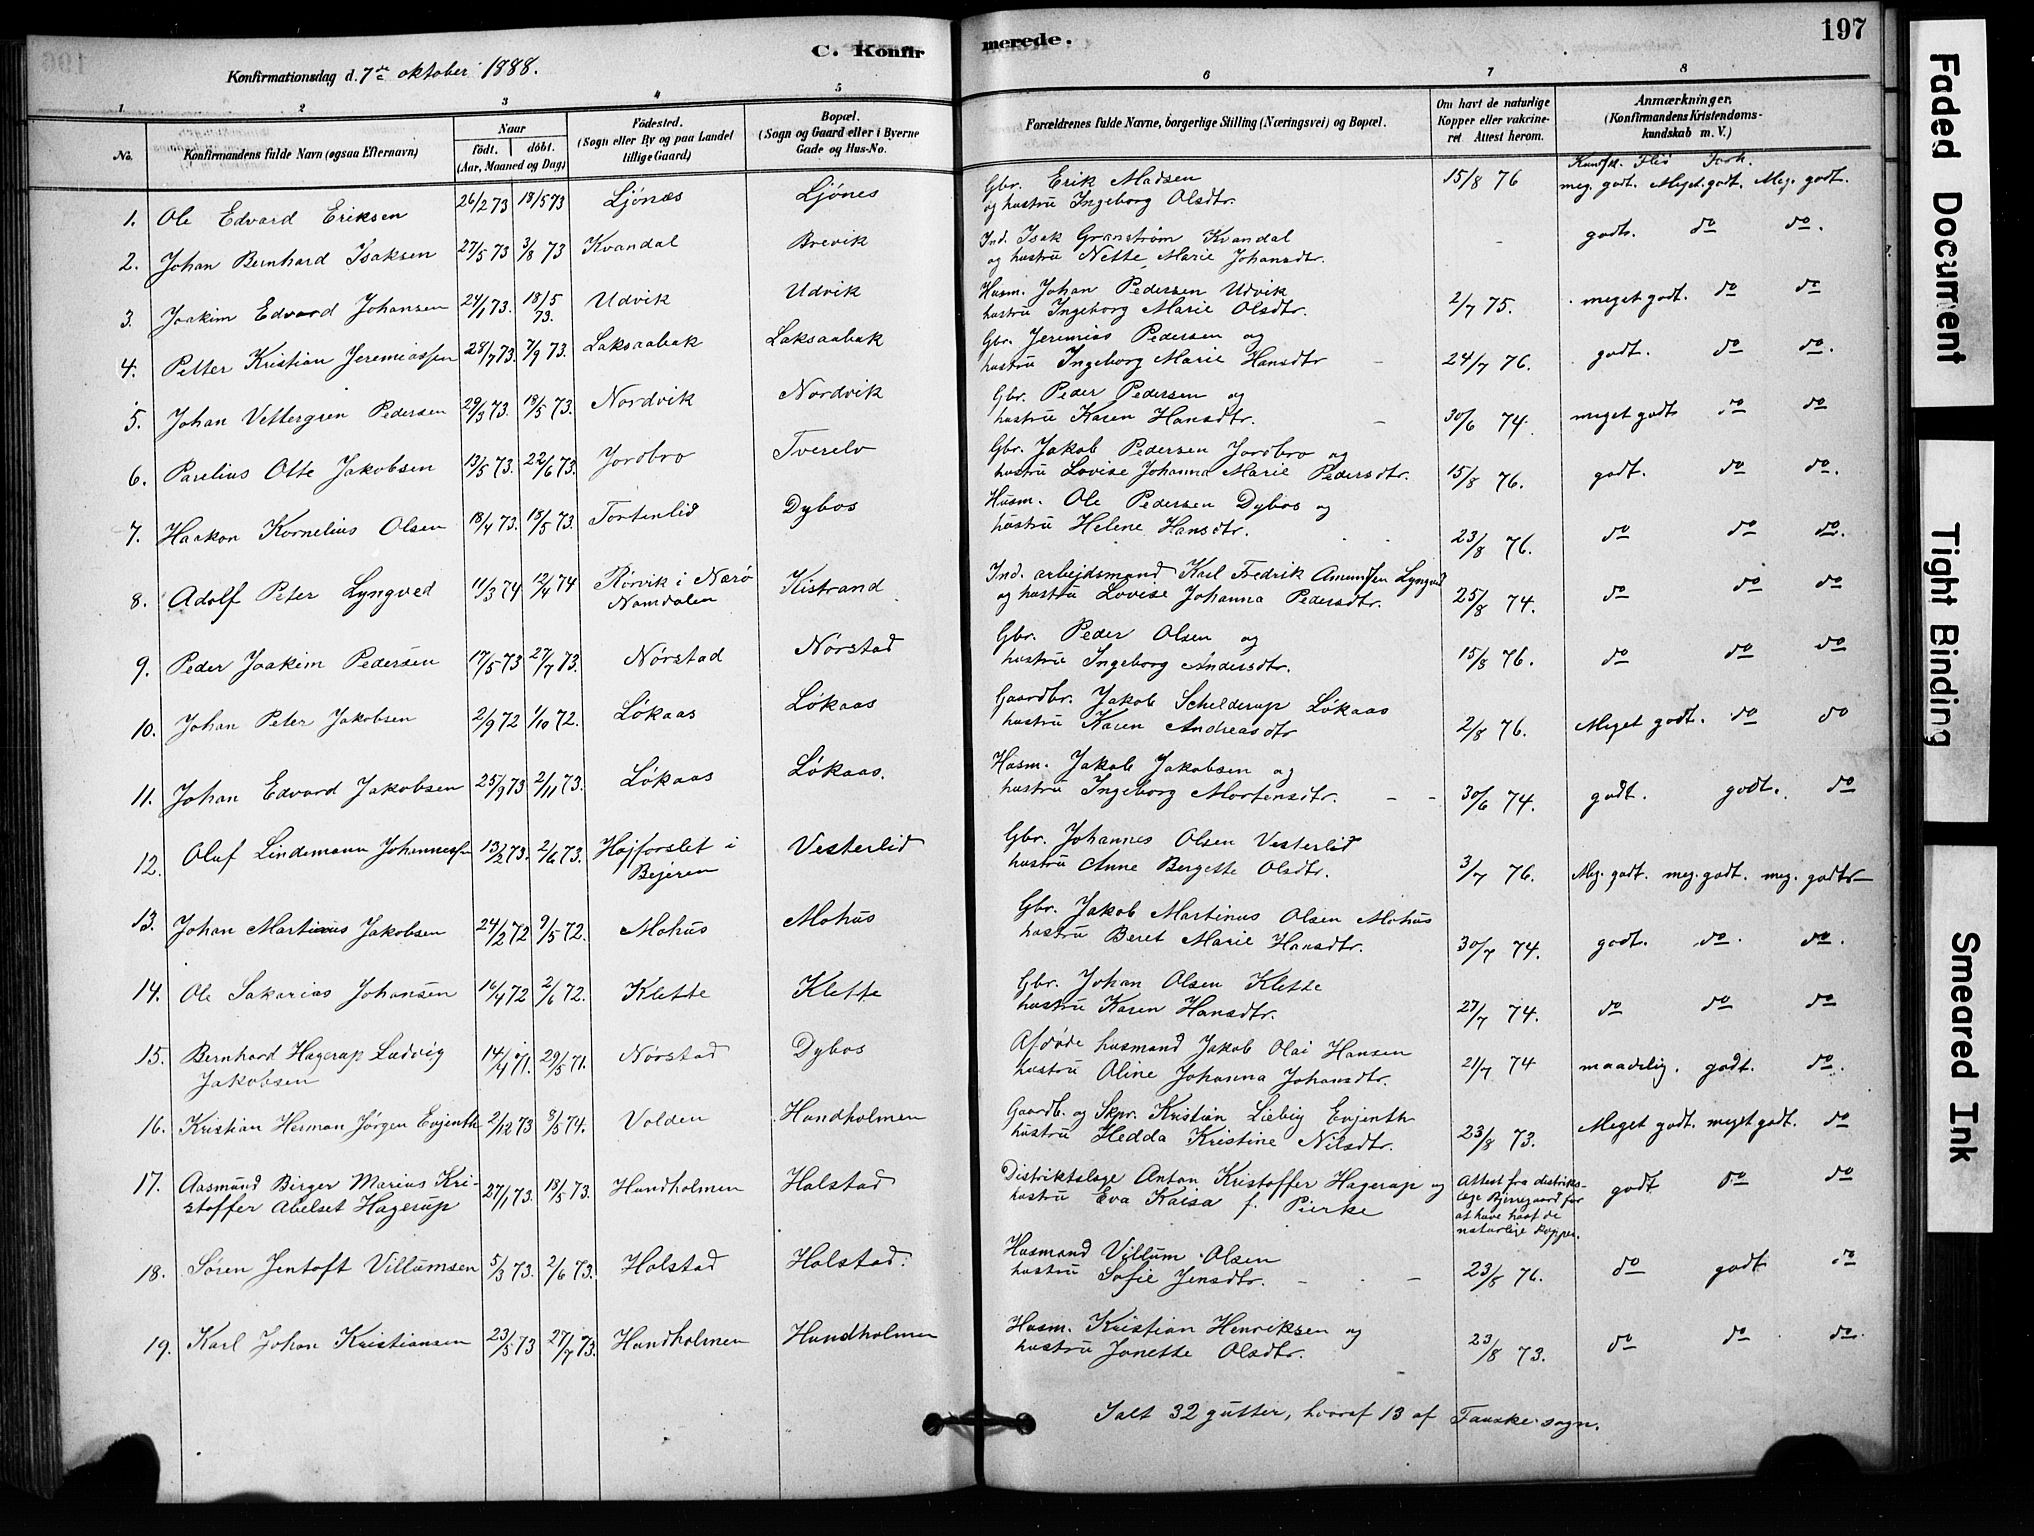 197
C. Konfirmerede.
Konfirmationsdag d. 7de oktober 1888.
1 2 3 4 5 6 7 8
No. Konfirmandens fulde Navn (ogsaa Efternavn) Naar født. døbt. (Aar, Maaned og Dag) Födested. (Sogn eller By og paa Landet tillige Gaard) Bopæl. (Sogn og Gaard eller i Byerne Gade og Hus-No. Forældrenes fulde Navne, borgerlige Stilling (Næringsvei) og Bopæl. Om havt de naturlige Kopper eller vakcineret Attest herom. Anmærkninger. (Konfirmandens Kristendomskundskab m. V.)
Kundsk. Flid Forh.
1. Ole Edvard Eriksen 26/2 73 18/5 73 Ljönæs Ljönes Gbr. Erik Madsen 15/8 76 meg. godt. Meget godt. Meg. godt.
og hustru Ingeborg Olsdtr.
2. Johan Bernhard Isaksen 27/5 73 3/8 73 Kvandal Brevik Ind. Isak Granström Kvandal - godt. do do.
og hustru Nette Marie Johansdtr.
3. Joakim Edvard Johansen 24/1 73. 18/5 73. Udvik Udvik Husm. Johan Pedersen Udvik 2/7 75. meget godt. do do
hustru Ingeborg Marie Olsdtr.
4. Petter Kristian Jeremiassen 28/7 73. 7/9 73. Laksaabak Laksaabak Gbr. Jeremias Pedersen og 24/7 76. godt. do do.
hustru Ingeborg Marie Hansdtr
5. Johan Vettergren Pedersen 29/3 73. 18/5 73. Nordvik Nordvik Gbr. Peder Pedersen og 30/6 74. meget godt do do
hustru Karen Hansdtr.
6. Parelius Otte Jakobsen 13/5 73. 22/6 73. Jordbro Tverelv Gbr. Jakob Pedersen Jordbro og 15/8 76. godt. do do.
hustru Lovise Johanna Marie Pedersdtr.
7. Haakon Kornelius Olsen 18/4 73. 18/5 73. Tortenlid Dybos Husm. Ole Pedersen Dybos og 23/8 76. do do do.
hustru Helene Hansdtr.
8. Adolf Peter Lyngved 11/3 74 12/4 74 Rörvik i Nærö Namdalen Kistrand Ind. arbejdsmand Karl Fredrik Amundsen Lyngved 25/8 74. do do do
og hustru Lovise Johanna Pedersdtr.
9. Peder Joakim Pedersen 17/5 73 27/7 73. Nörstad Nörstad Gbr. Peder Olsen og 15/8 76. do do do
hustru Ingeborg Andersdtr.
10. Johan Peter Jakobsen 2/9 72 1/10 72. Lökaas Lökaas Gaardbr. Jakob Schelderup Lökaas 2/8 76. Meget godt. do do
hustru Karen Andreasdtr
11. Johan Edvard Jakobsen 25/9 73 2/11 73. Lökaas Lökaas. Husm. Jakob Jakobsen og 30/6 74. godt. godt. do
hustru Ingeborg Mortensdtr.
12. Oluf Lindemann Johannessen 13/2 73. 2/6 73. Højforslet i Bejeren Vesterlid Gbr. Johannes Olsen Vesterlid 3/7 76. Meg. godt. meg. godt. meg. godt
hustru Anne Bergette Olsdtr.
13. Johan Martinus Jakobsen 24/2 72 9/5 72. Mohus Mohus Gbr. Jakob Martinus Olsen Mohus 30/7 74. godt. do. do.
hustru Beret Marie Hansdtr.
14. Ole Sakarias Johansen 16/4 72 2/6 72. Klette Klette Gbr. Johan Olsen Klette 27/7 74. do do do
hustru Karen Hansdtr.
15. Bernhard Hagerup Ludvig Jakobsen 14/4 71. 29/5 71. Nörstad Dybos Afdöde husmand Jakob Olai Hansen 21/7 74 maadelig. godt. do.
hustru Oline Johanna Johansdtr.
16. Kristian Herman Jörgen Evjenth 2/12 73 8/5 74. Volden Hundholmen Gaardb. og Skpr. Kristian Liebig Evjenth 23/8 73. Meget godt. meget godt. do
hustru Hedda Kristine Nilsdtr.
17. Aasmund Birger Marius Kristoffer Abelset Hagerup 27/1 73. 18/5 73. Hundholmen Halstad Distriktslæge Anton Kristoffer Hagerup og Attest fra distrikslæge Bjerregaard for at have havt de naturlige Kopper. godt do do
hustru Eva Kaisa f. Pierke
18. Sören Jentoft Villumsen 5/3 73. 2/6 73. Halstad Halstad. Husmand Villum Olsen 23/8 76. do godt do
hustru Sofie Jensdtr.
19. Karl Johan Kristiansen 23/5 73 27/7 73. Hundholmen Hundholmen Husm. Kristian Henriksen og 23/8 73. do do do
hustru Janette Olsdtr.
Ialt 32 gutter, hvoraf 13 af Fauske sogn.
Faded Document
Tight Binding
Smeared Ink